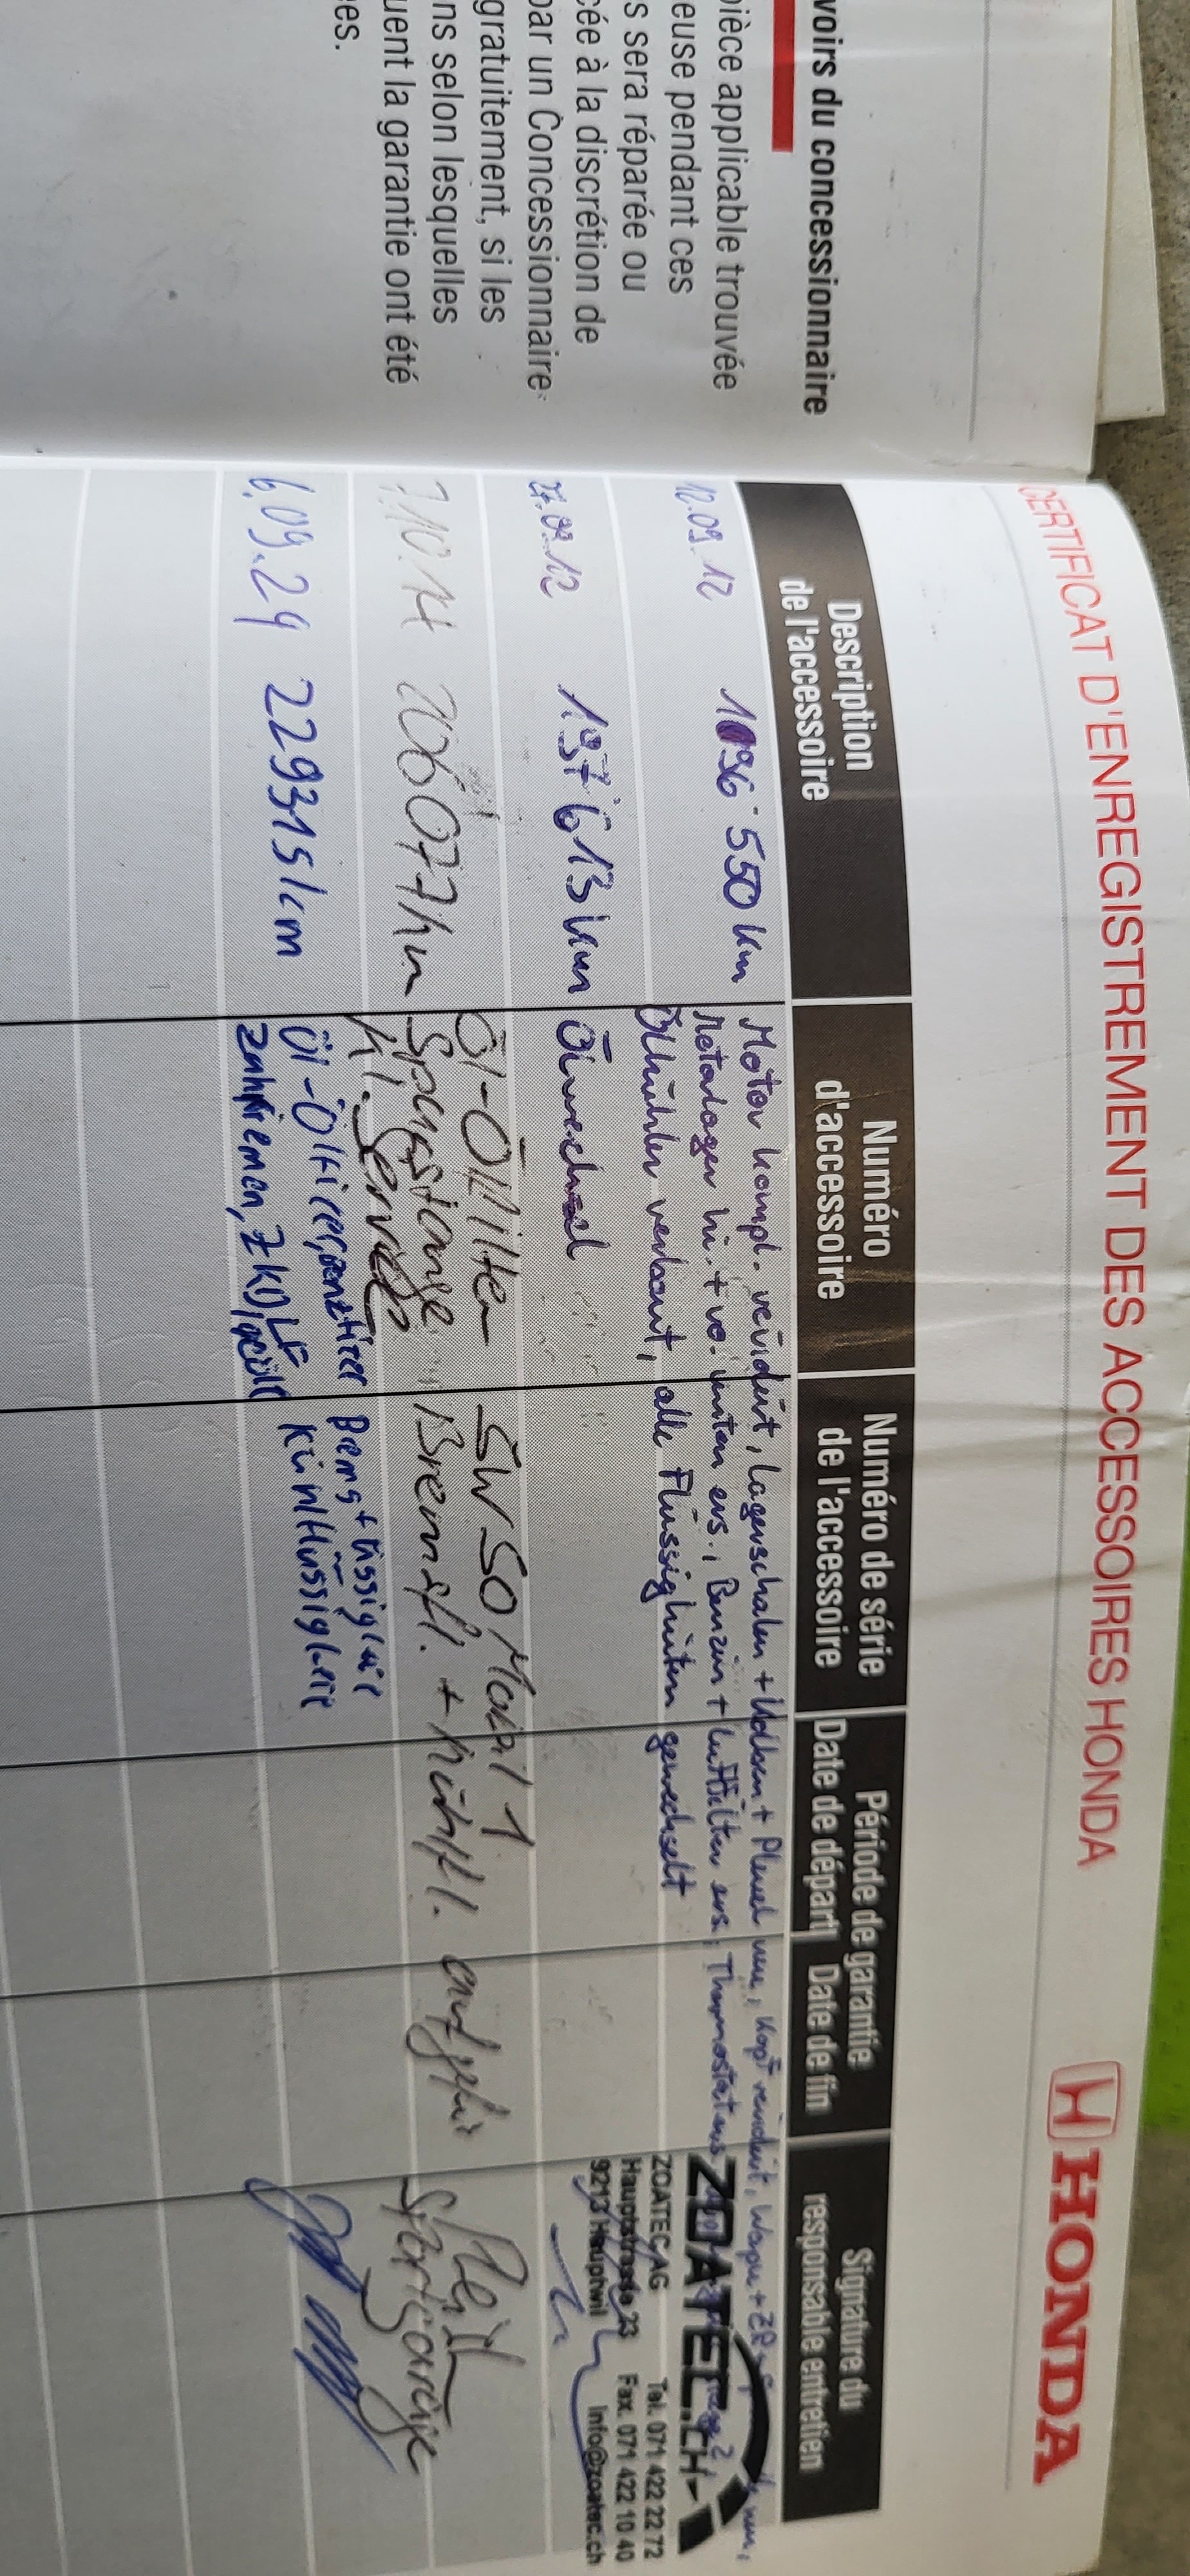 voirs du concessionnaire
pièce applicable trouvée
euse pendant ces
s sera réparée ou
cée à la discrétion de
par un Concessionnaire
gratuitement, si les
ns selon lesquelles
uent la garantie ont été
es.
CERTIFICAT D'ENREGISTREMENT DES ACCESSOIRES HONDA
HONDA
Description de l'accessoire
Numéro d'accessoire
Numéro de série de l'accessoire
Période de garantie
Date de départ Date de fin
Signature du responsable entretien
12.09.12 196'550 km Motor kompl. revidiert, Lagerschalen + Kolben + Pleuel neu, Kopf revidiert, Wapu + ZR
Motorlager hi. + vo. unten ers., Benzin + Luftfilter ers., Thermostat
Ölkühler verbaut, alle Flüssigkeiten gewechselt
ZOATEC.CH
ZOATEC AG Tel. 071 422 22 72
Hauptstrasse 23 Fax. 071 422 10 40
9213 Hauptwil Info@zoatec.ch
27.09.12 197'613 km Ölwechsel
7.10.14 206077km Öl-Ölfilter 5W50 Mobil 1
Spurstange Bremsfl. + Kühlfl.
Kl. Service
6.09.24 229315 km Öl-Ölfilter, Benzfilter Bremsflüssigkeit
Zahnriemen, ZKD, LF Kühlflüssigkeit